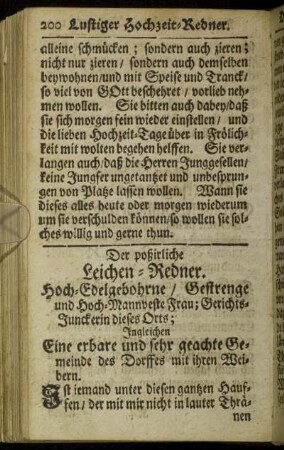 200 Lustiger Hochzeit-Redner.
alleine schmücken; sondern auch zieren;
nicht nur zieren/ sondern auch demselben
beywohnen/und mit Speise und Tranck/
so viel von GOtt beschehret/ vorlieb neh-
men wollen. Sie bitten auch dabey/daß
sie sich morgen fein wieder einstellen/ und
die lieben Hochzeit-Tage über in Frölich-
keit mit wolten begehen helffen. Sie ver-
langen auch/daß die Herren Junggesellen/
keine Jungfer ungetantzet und unbesprun-
gen von Platze lassen wollen. Wann sie
dieses alles heute oder morgen wiederum
um sie verschulden können/so wollen sie sol-
ches willig und gerne thun.
Der poßirliche
Leichen-Redner.
Hoch-Edelgebohrne/ Gestrenge
und Hoch-Mannveste Frau; Gerichts-
Junckerin dieses Orts;
Ingleichen
Eine erbare und sehr geachte Ge-
meinde des Dorffes mit ihren Wei-
bern.
Ist iemand unter diesen gantzen Hauf-
fen/ der mit mir nicht in lauter Thrä-
nen